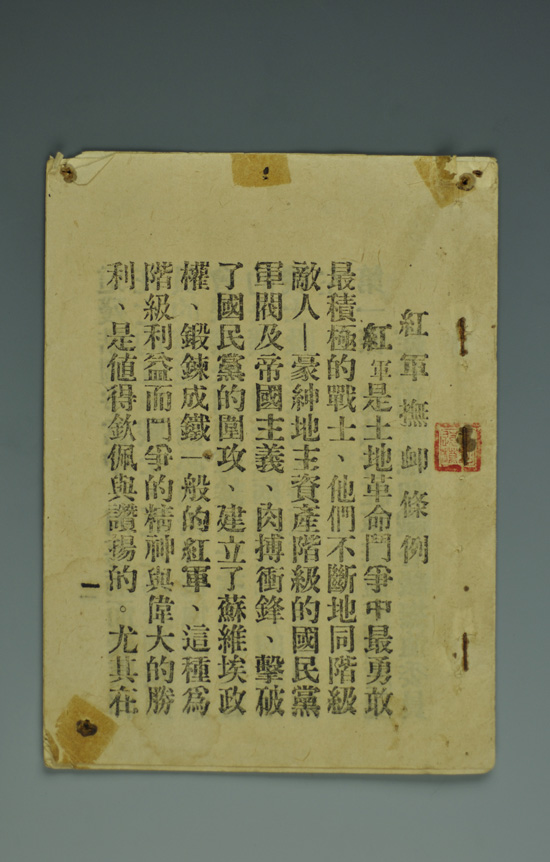 紅軍撫卹條例
紅軍是土地革命鬥爭中最勇敢
最積極的戰士、他們不斷地同階級
敵人—豪紳地主資產階級的國民黨
軍閥及帝國主義、肉搏衝鋒、擊破
了國民黨的圍攻、建立了蘇維埃政
權、鍛鍊成鐵一般的紅軍、這種為
階級利益而鬥爭的精神與偉大的勝
利、是值得欽佩與讚揚的。尤其在
一